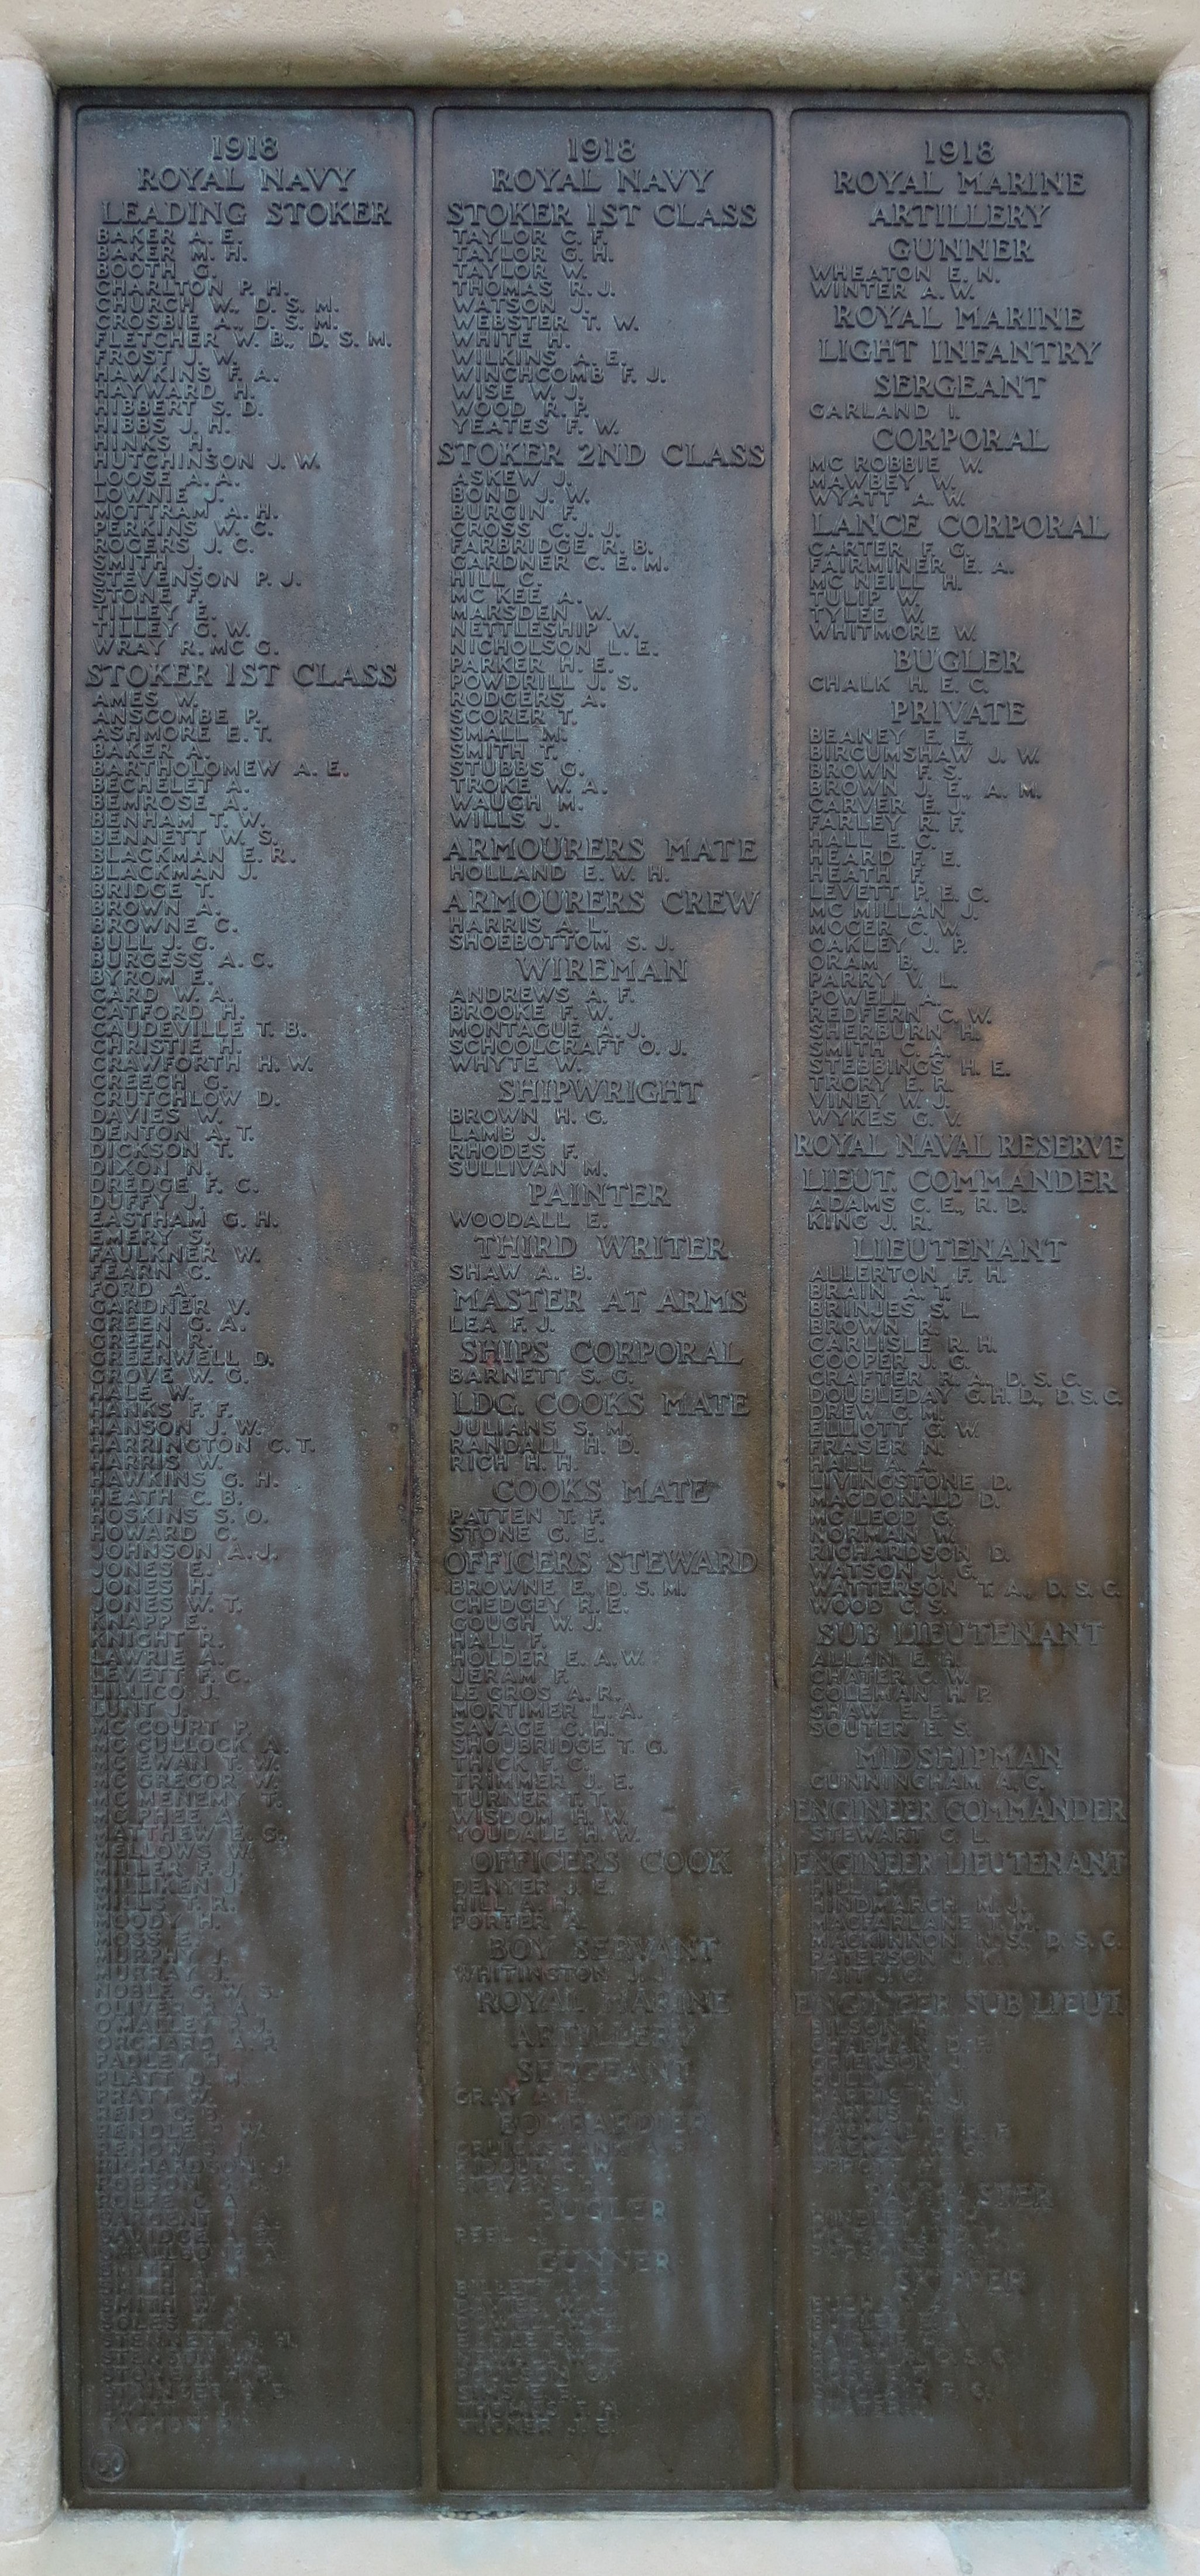 1918
ROYAL NAVY
LEADING STOKER
BAKER A. E.
BAKER M. H.
BOOTH G.
CHARLTON P. H.
CHURCH W., D. S. M.
CROSBIE A., D. S. M.
FLETCHER W. B., D. S. M.
FROST J. W.
HAWKINS F. A.
HAYWARD H.
HIBBERT S. D.
HIBBS J. H.
HINKS H.
HUTCHINSON J. W.
LOOSE A. A.
LOWNIE J.
MOTTRAM A. H.
PERKINS W. C.
ROGERS J. C.
SMITH J.
STEVENSON P. J.
STONE F.
TILLEY E.
TILLEY G. W.
WRAY R. MC G.
STOKER 1ST CLASS
AMES W.
ANSCOMBE P.
ASHMORE E. T.
BAKER A.
BARTHOLOMEW A. E.
BECHELET A.
BEMROSE A.
BENHAM T. W.
BENNETT W. S.
BLACKMAN E. R.
BLACKMAN J.
BRIDGE T.
BROWN A.
BROWNE C.
BULL J. G.
BURGESS A. C.
BYROM E.
CARD W. A.
CATFORD H.
CAUDEVILLE T. B.
CHRISTIE H.
CRAWFORTH H. W.
CREECH G.
CRUTCHLOW D.
DAVIES W.
DENTON A. T.
DICKSON T.
DIXON N.
DREDGE F. C.
DUFFY J.
EASTHAM G. H.
EMERY S.
FAULKNER W.
FEARN C.
FORD A.
GARDNER V.
GREEN G. A.
GREEN R.
GREENWELL D.
GROVE W. G.
HALE W.
HANKS F. F.
HANSON J. W.
HARRINGTON C. T.
HARRIS W.
HAWKINS G. H.
HEATH C. B.
HOSKINS S. O.
HOWARD C.
JOHNSON A. J.
JONES E.
JONES H.
JONES W. T.
KNAPP E.
KNIGHT R.
LAWRIE A.
LEVETT F. C.
LILLICO J.
LUNT J.
MC COURT P.
MC CULLOCK A.
MC EWAN T. W.
MC GREGOR W.
MC MENEMY T.
MC PHEE A.
MATTHEW E. G.
MELLOWS W.
MILLER F. J.
MILLIKEN J.
MILLS T. R.
MOODY H.
MOSS E.
MURPHY J.
MURRAY J.
NOBLE G. W. S.
OLIVER R. A.
O'MALLEY
ORCHARD A. R.
PADLEY H.
PLATT
PRATT W.
REID
RENDLE
RICHARDSON J.
ROBSON
SMITH
SMITH
SMITH W. J.
30
1918
ROYAL NAVY
STOKER 1ST CLASS
TAYLOR C. F.
TAYLOR G. H.
TAYLOR W.
THOMAS R. J.
WATSON J.
WEBSTER T. W.
WHITE H.
WILKINS A. E.
WINCHCOMB F. J.
WISE W. J.
WOOD R. P.
YEATES F. W.
STOKER 2ND CLASS
ASKEW J.
BOND J. W.
BURGIN F.
CROSS C. J. J.
FARBRIDGE R. B.
GARDNER C. E. M.
HILL C.
MC KEE A.
MARSDEN W.
NETTLESHIP W.
NICHOLSON L. E.
PARKER H. E.
POWDRILL J. S.
RODGERS A.
SCORER T.
SMALL M.
SMITH T.
STUBBS G.
TROKE W. A.
WAUGH M.
WILLS J.
ARMOURERS MATE
HOLLAND E. W. H.
ARMOURERS CREW
HARRIS A. L.
SHOEBOTTOM S. J.
WIREMAN
ANDREWS A. F.
BROOKE F. W.
MONTAGUE A. J.
SCHOOLCRAFT O. J.
WHYTE W.
SHIPWRIGHT
BROWN H. G.
LAMB J.
RHODES F.
SULLIVAN M.
PAINTER
WOODALL E.
THIRD WRITER
SHAW A. B.
MASTER AT ARMS
LEA F. J.
SHIPS CORPORAL
BARNETT S. G.
LDG. COOKS MATE
JULIANS S. M.
RANDALL H. D.
RICH H. H.
COOKS MATE
PATTEN T. F.
STONE G. E.
OFFICERS STEWARD
BROWNE E., D. S. M.
CHEDGEY R. E.
GOUGH W. J.
HALL F.
HOLDER E. A. W.
JERAM F.
LE GROS A. R.
MORTIMER L. A.
SAVAGE C. H.
SHOUBRIDGE T. G.
THICK F. C.
TRIMMER J. E.
TURNER T. T.
WISDOM H. W.
YOUDALE H. W.
OFFICERS COOK
DENYER J. E.
HILL A. H.
PORTER A.
BOY SERVANT
WHITINGTON J. J.
ROYAL MARINE
ARTILLERY
SERGEANT
GRAY A. E.
BOMBARDIER
CRUICKSHANK A. P.
STEVENS
BUGLER
PEEL J.
GUNNER
THOMAS T. H.
TUCKER J. E.
1918
ROYAL MARINE
ARTILLERY
GUNNER
WHEATON E. N.
WINTER A. W.
ROYAL MARINE
LIGHT INFANTRY
SERGEANT
GARLAND I.
CORPORAL
MC ROBBIE W.
MAWBEY W.
WYATT A. W.
LANCE CORPORAL
CARTER F. G.
FAIRMINER E. A.
MC NEILL H.
TULIP W.
TYLEE W.
WHITMORE W.
BUGLER
CHALK H. E. C.
PRIVATE
BEANEY E. E.
BIRCUMSHAW J. W.
BROWN F. S.
BROWN J. E., A. M.
CARVER E. J.
FARLEY R. F.
HALL E. C.
HEARD F. E.
HEATH F.
LEVETT P. E. C.
MC MILLAN J.
MOGER C. W.
OAKLEY J. P.
ORAM B.
PARRY V. L.
POWELL A.
REDFERN C. W.
SHERBURN H.
SMITH C. A.
STEBBINGS H. E.
TRORY E. R.
VINEY W. J.
WYKES G. V.
ROYAL NAVAL RESERVE
LIEUT. COMMANDER
ADAMS C. E., R. D.
KING J. R.
LIEUTENANT
ALLERTON F. H.
BRAIN A. T.
BRINJES S. L.
BROWN R.
CARLISLE R. H.
COOPER J. G.
CRAFTER R. A., D. S. C.
DOUBLEDAY G. H. D., D. S. C.
DREW G. M.
ELLIOTT G. W.
FRASER N.
HALL A. A.
LIVINGSTONE D.
MACDONALD D.
MC LEOD G.
NORMAN W.
RICHARDSON D.
WATSON J. G.
WATTERSON T. A., D. S. C.
WOOD C. S.
SUB LIEUTENANT
ALLAN E. H.
CHATER C. W.
COLEMAN H. P.
SHAW E. E.
SOUTER E. S.
MIDSHIPMAN
CUNNINGHAM A. C.
ENGINEER COMMANDER
STEWART C. L.
ENGINEER LIEUTENANT
HILL
HINDMARCH M. J.
MACFARLANE T. M.
MACKINNON N. S., D. S. C.
PATERSON J. K.
TAIT J. G.
ENGINEER SUB LIEUT.
HARRIS
JARVIS
MACKAY
PAYMASTER
HINDLEY
SKIPPER